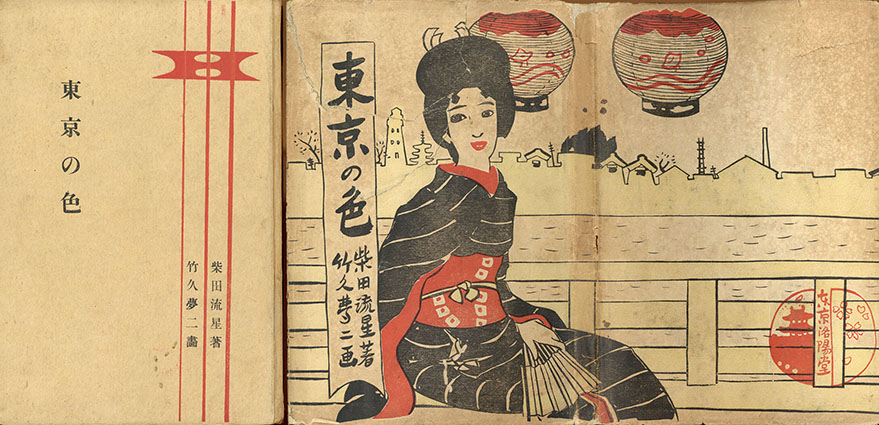 東京の色
柴田流星著
竹久夢二畵
東京の色
柴田流星著
竹久夢二画
东京洛陽堂